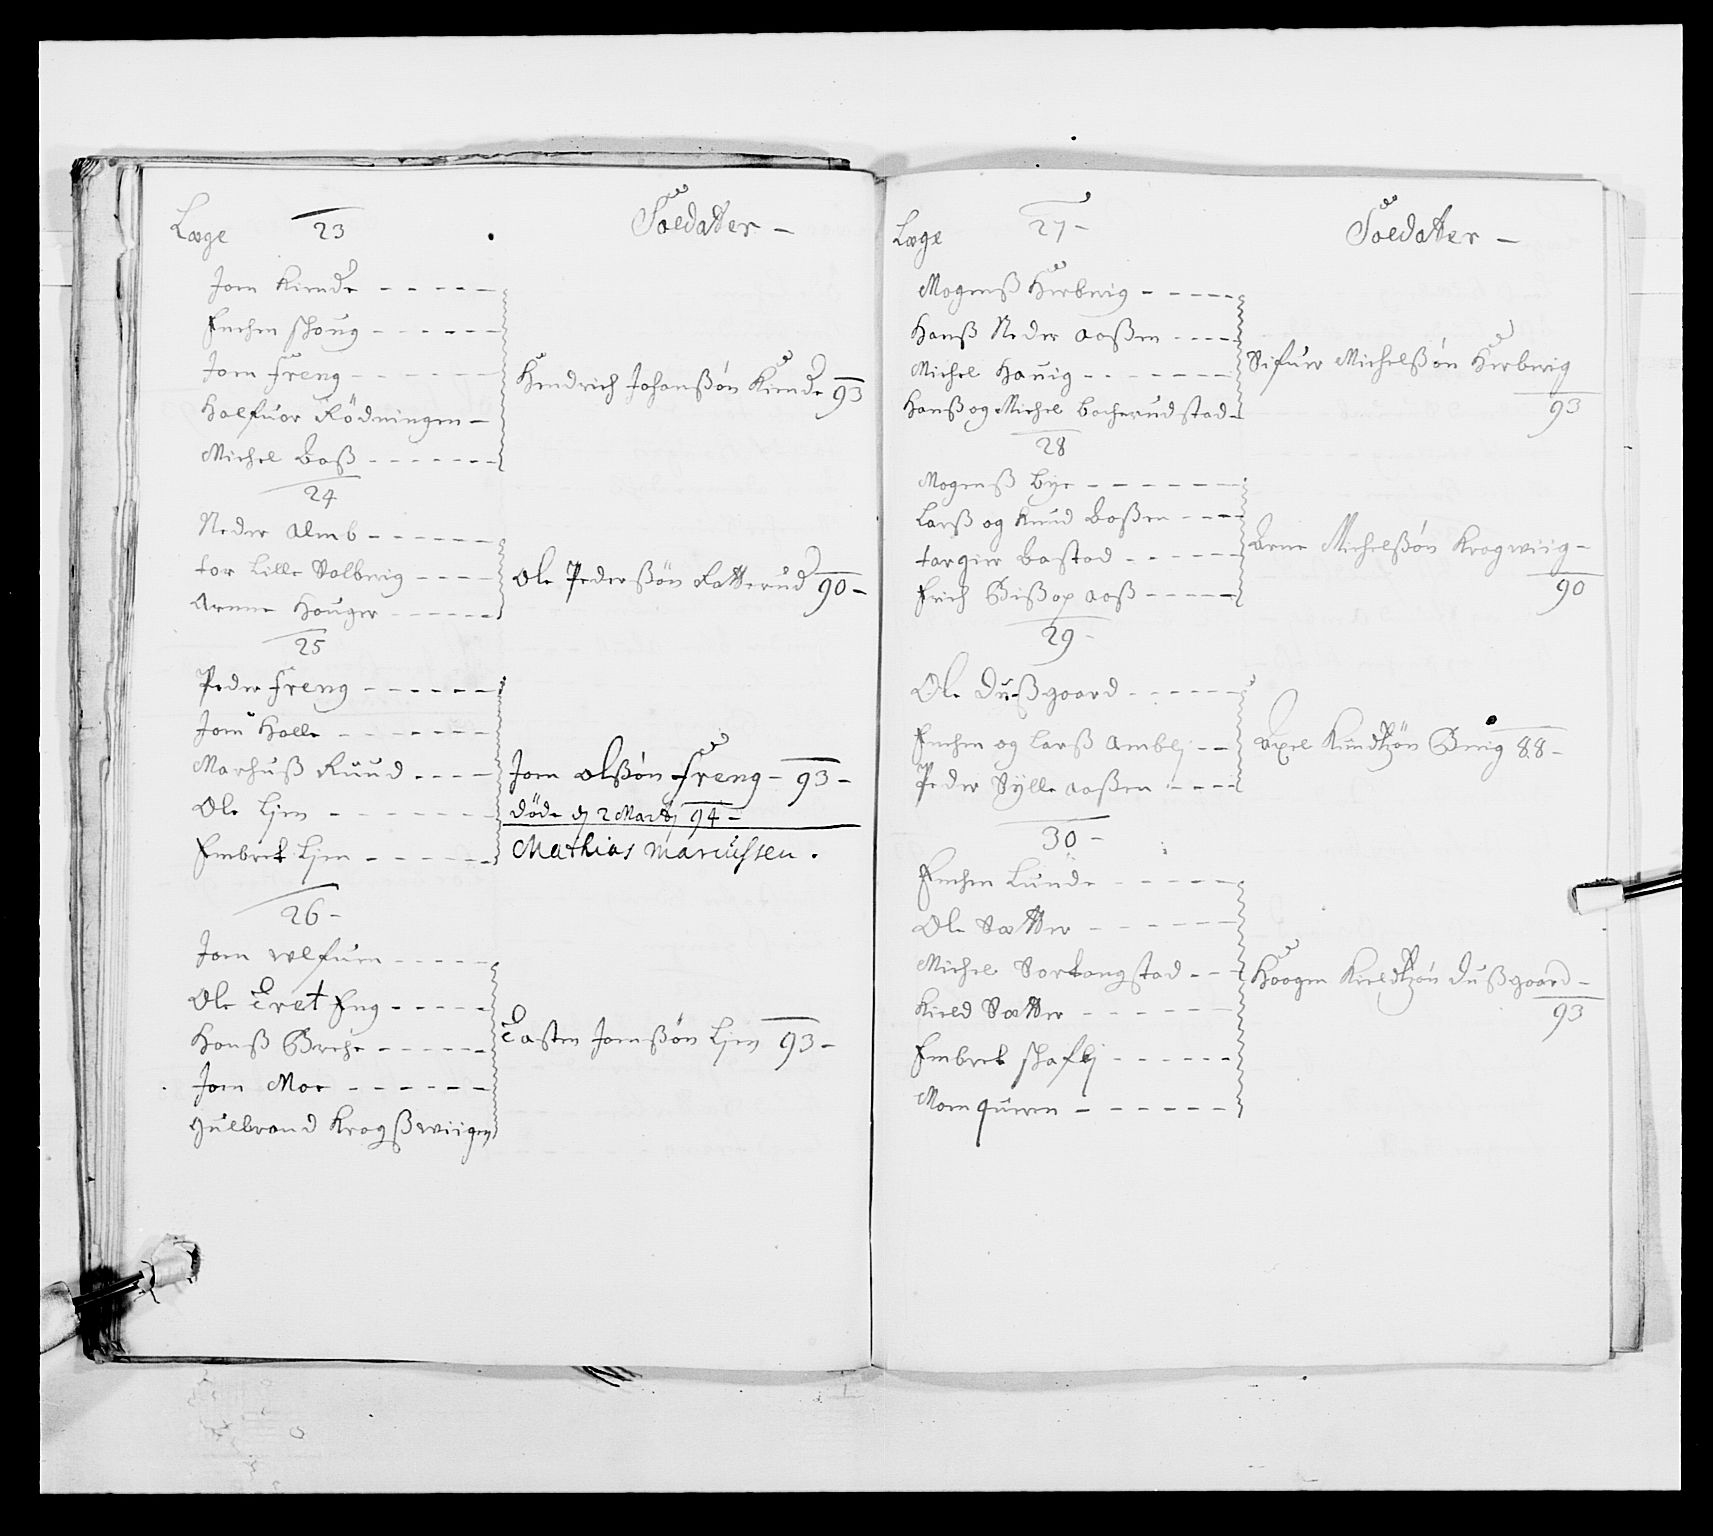 Læge 23 Soldatter -
Jon Kinde
Enchen Schoug
Jon Freng
Halfuor Rödningen
Michel Boß
Hendrich Johanßön Kinde 93
24
Neder Almb
tor Lille Solberig
Arnne Houger
Ole Pederßön Fatterud 90 -
25
Peder Freng
Jon Halle
Marhuß Ruud
Ole Ljen
Embret Ljen
Jon Olßön Freng - 93 -
döde dj 2 Martj 94 -
Mathias Marcussen.
26 -
Jon Ulfuen
Ole Tret Eng
Hanß Brche
Jon Moe
Gulbrand Krogßwiigen
Tosten Jonßön Ljen 93 -
Læge 27 - Soldatter -
Mogenß Herberig
Hanß Neder Aaßen
Michel Hauig
Hanß og Michel Bacherudstad
Sifuer Michelßön Herberig
93
28
Mogenß Bye
Larß og Knud Boßen
targier Bastad
Erich Bißop Aaß
Arne Michelßön Krogwiig -
90
29 -
Ole Dußgaard
Enchen og Larß Amblj
Peder Sylle Aaßen
Axel Knudtzön Brnig 88 -
30 -
Enchen Lunde
Ole Sætter
Michel Sortangstad
Kield Sætter
Embret Schaflj
Mon quern
Haagen Kieldtzön Dußgaard -
93